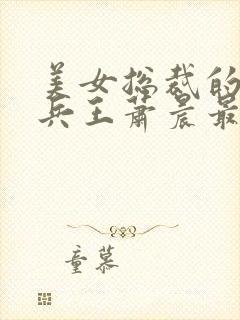 美女总裁的
兵王萧晨最
童慕